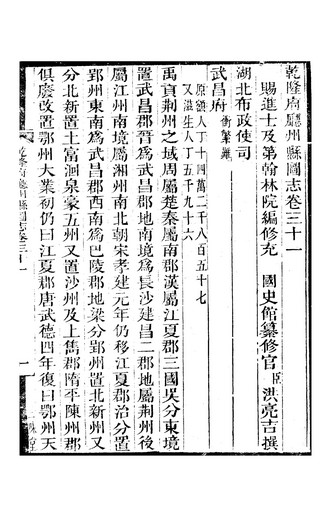 乾隆府廳州縣圖志卷三十一
賜進士及第翰林院編修充　國史館纂修官臣洪亮吉撰
湖北布政使司
武昌府衝繁難
原額人丁十四萬二千八百五十七
又滋生人丁五千九十六
禹貢荊州之域周屬楚秦屬南郡漢屬江夏郡三國吳分東境
置武昌郡晉爲武昌郡地南境爲長沙建昌二郡地屬荊州後
屬江州南境屬湘州南北朝宋孝建元年仍移江夏郡治分置
郢州東南爲武昌郡西南爲巴陵郡地梁分郢州置北新州又
分北新置土富洄泉豪五州又置沙州及上雋郡隋平陳州郡
俱廢改置鄂州大業初仍曰江夏郡唐武德四年復曰鄂州天
乾隆府廳州縣圖志卷三十一
一